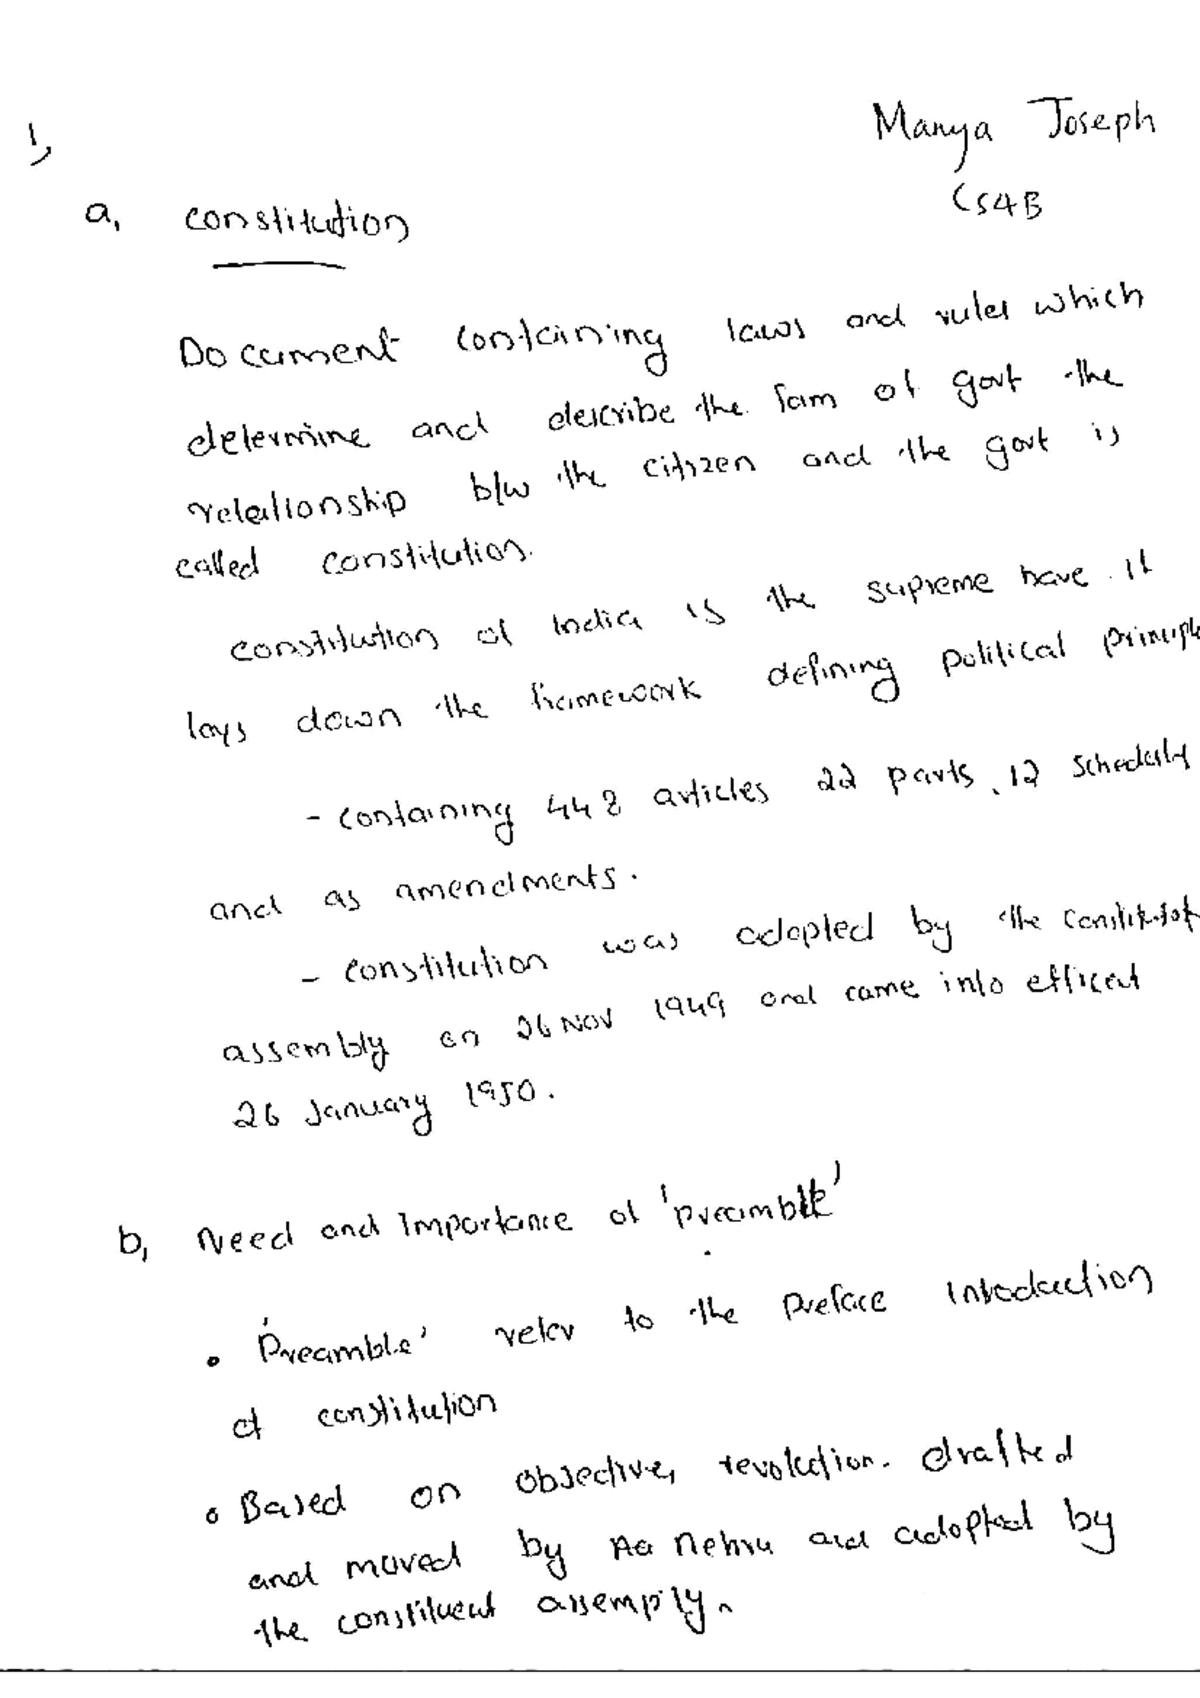 Manya Joseph
1,
CS4B
a, constitution
Document containing laws and rules which
determine and describe the form of govt the
relationship b/w the citizen and the govt is
called constitution.
constitution of India is the supreme have. it
lays down the framework defining political principle
- containing 448 articles 22 parts, 12 schedule
and as amendments.
- constitution was adopted by the
assembly on 26 Nov 1949 and came into
26 January 1950.
b, Need and Importance of 'preamble'
• 'Preamble' refer to the preface introduction
of constitution
• Based on objective, revolution. drafted
and moved by Nehru and adopted by
the constituent assemply.